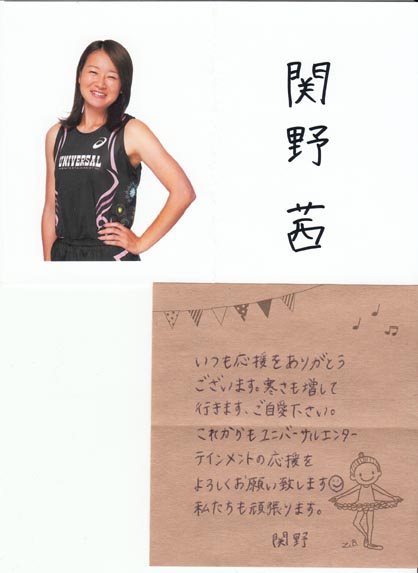 UNIVERSAL
関野 茜
いつも応援をありがとう
ございます。寒さも増して
行きます、ご自愛下さい。
これからもユニバーサルエンター
テインメントの応援を
よろしくお願い致します
私たちも頑張ります。
関野